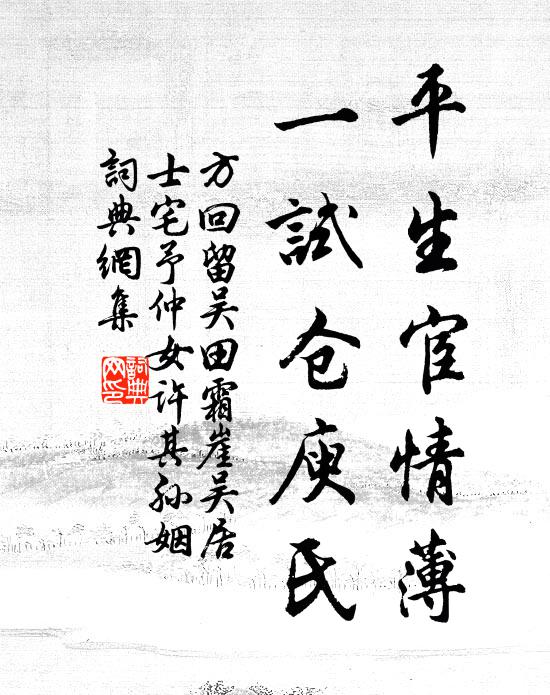 平生宦情薄
一試仓庾氏
方回留吴田霜崖吴居
士宅予仲女许其孙姻
詞典網集
詞典
网印